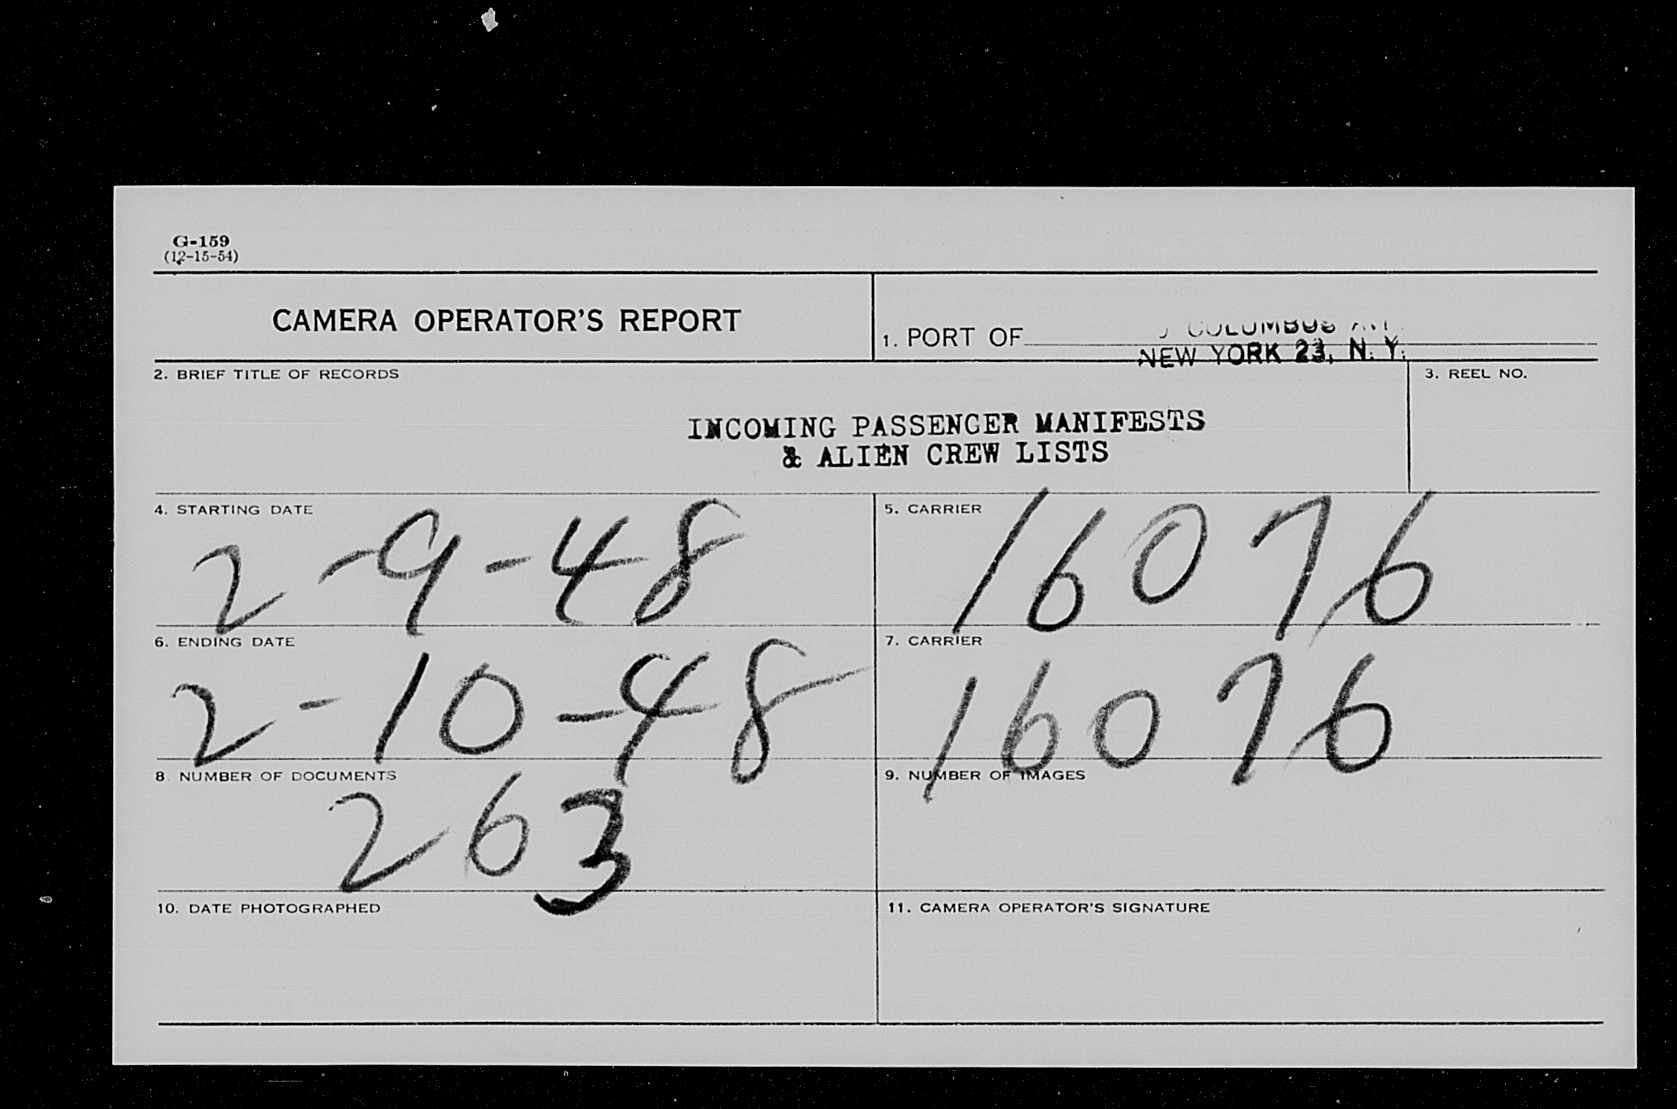 G-159
(12-15-54)
CAMERA OPERATOR'S REPORT
1. PORT OF
COLUMBUS
NEW YORK 23, N. Y.
2. BRIEF TITLE OF RECORDS
3. REEL NO.
INCOMING PASSENGER MANIFESTS
& ALIEN CREW LISTS
4. STARTING DATE
2-9-48
5. CARRIER
16076
6. ENDING DATE
2-10-48
7. CARRIER
16076
8. NUMBER OF DOCUMENTS
263
9. NUMBER OF IMAGES
10. DATE PHOTOGRAPHED
11. CAMERA OPERATOR'S SIGNATURE